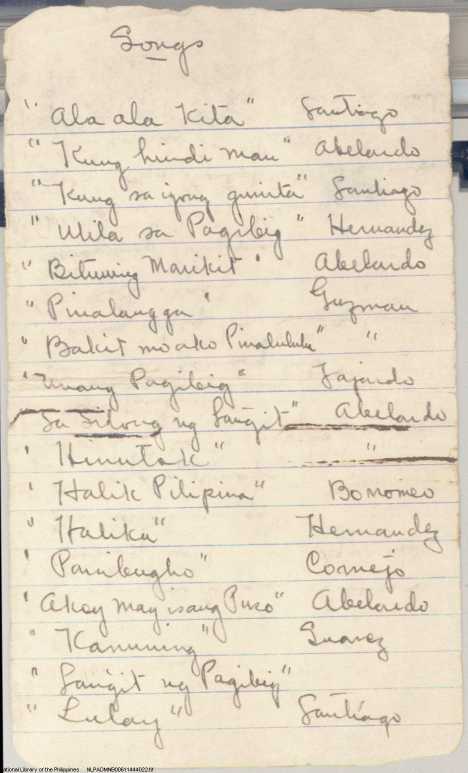 Songs
"Ala ala Kita" Santiago
"Kung hindi man" Abelardo
"Kung sa iyong gunita" Santiago
"Ulila sa Pagibig" Hernandez
"Bituing Marikit" Abelardo
"Pinalangga" Guzman
"Bakit mo ako Pinaluluha" "
"Unang Pagibig" Fajardo
Sa Silong ng Langit" Abelardo
"Himutok" "
"Halik Pilipina" Bonomeo
"Halika" Hernandez
"Panibugho" Cornejo
"Akoy may isang Puso" Abelardo
"Kamuning" Suarez
"Langit ng Pagibig"
"Lulay" Santiago
National Library of the Philippines NLPADMNB0061144402